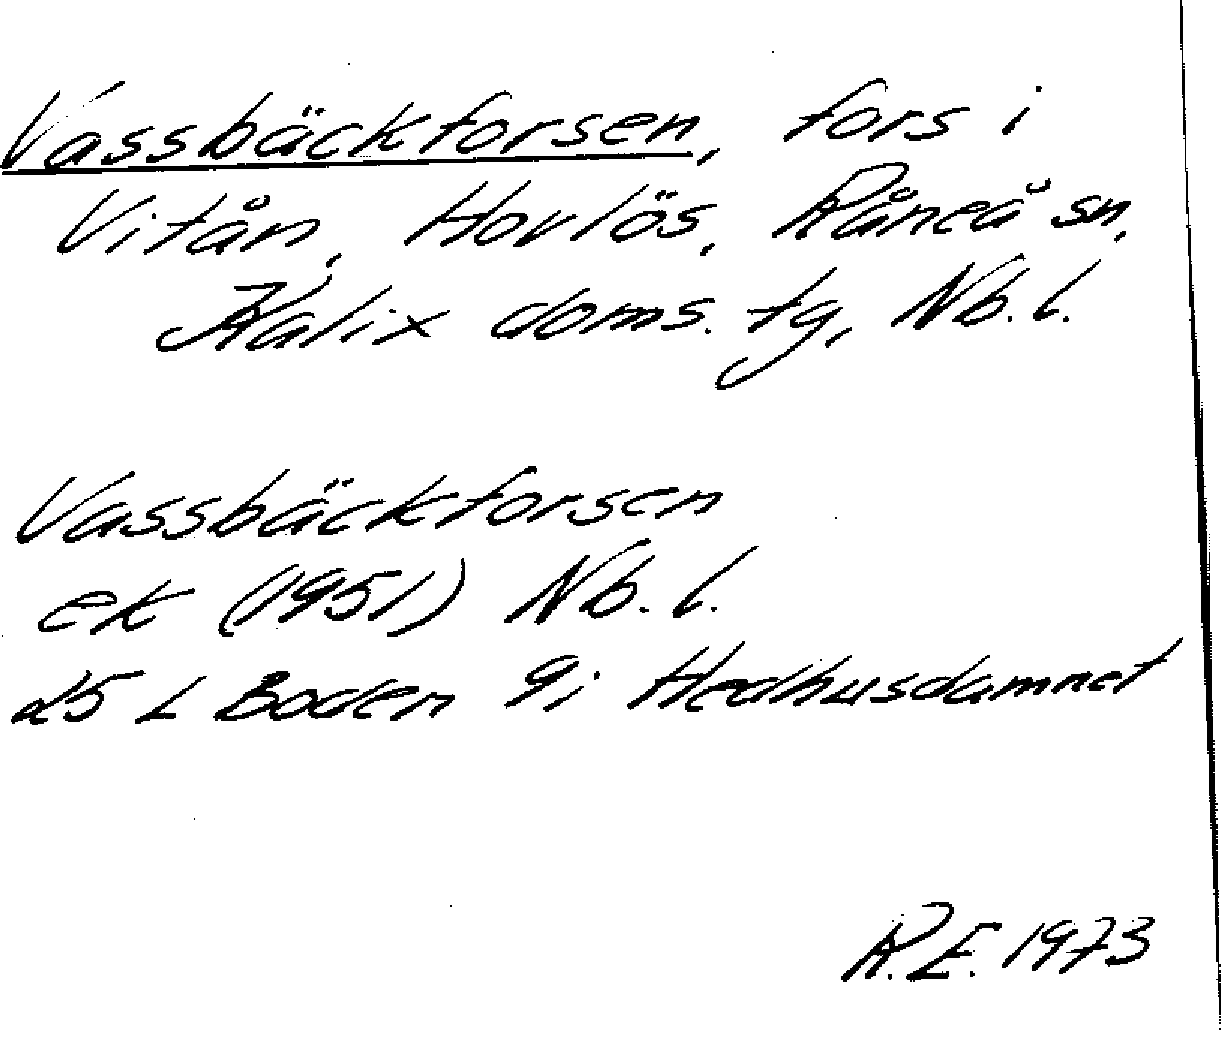 Vassbäckforsen, fors i
Vitån, Hovlös, Råneå sn,
Kalix doms. tg, Nb. l.
Vassbäckforsen
ek (1951) Nb. l.
25 L Boden 9i Hedhusdamnet
R.E. 1973